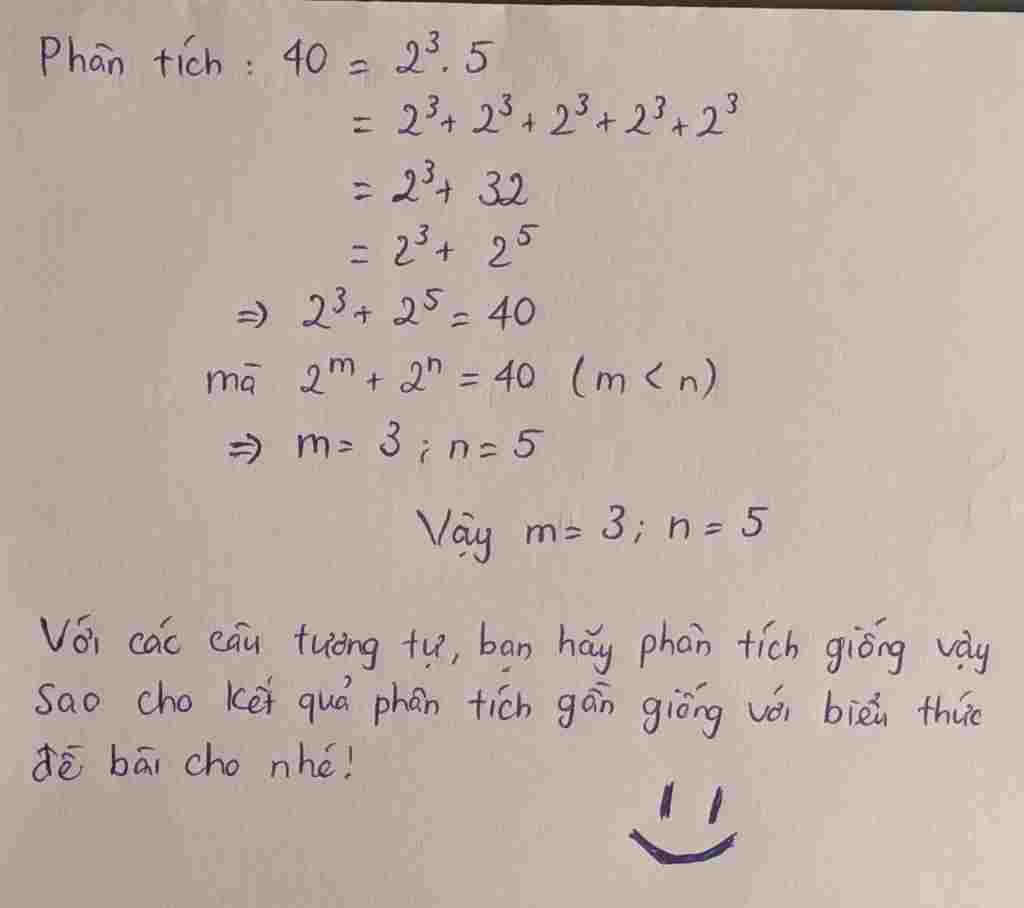 Phân tích : 40 = 2³. 5
= 2³ + 2³ + 2³ + 2³ + 2³
= 2³ + 32
= 2³ + 2⁵
⇒ 2³ + 2⁵ = 40
mà 2ᵐ + 2ⁿ = 40 (m < n)
⇒ m = 3 ; n = 5
Vậy m = 3 ; n = 5
Với các câu tương tự, bạn hãy phân tích giống vậy
sao cho kết quả phân tích gần giống với biểu thức
đề bài cho nhé!